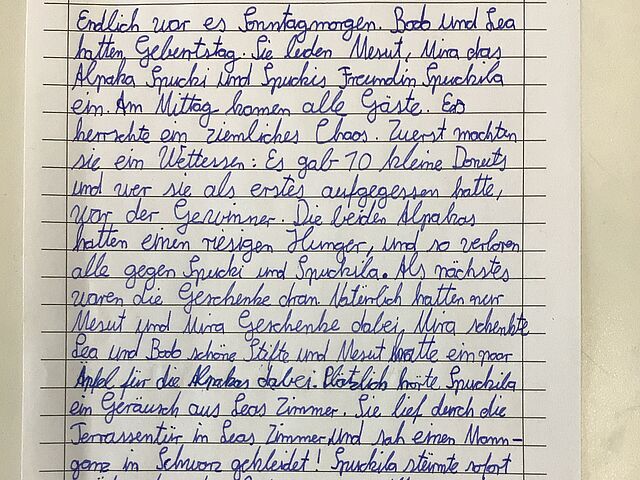 Endlich war es Sonntagmorgen. Bobb und Lea
hatten Gebertstag. Sie luden Mesut, Mira das
Alpaka Spucki und Spuckis Freundin Spuckila
ein. Am Mittag kamen alle Gäste. Es
herrschte ein ziemliches Chaos. Zuerst machten
sie ein Wettessen: Es gab 10 kleine Donuts
und wer sie als erstes aufgegessen hatte,
war der Gewinner. Die beiden Alpakas
hatten einen riesigen Hunger, und so verloren
alle gegen Spucki und Spuckila. Als nächstes
waren die Geschenke dran. Natürlich hatten nur
Mesut und Mira Geschenke dabei, Mira schenkte
Lea und Bobb schöne Stifte und Mesut hatte ein paar
Äpfel für die Alpakas dabei. Plötzlich hörte Spuckila
ein Geräusch aus Leas Zimmer. Sie lief durch die
Terrassentür in Leas Zimmer, und sah einen Mann-
ganz in Schwarz gekleidet! Spuckila stürmte sofort